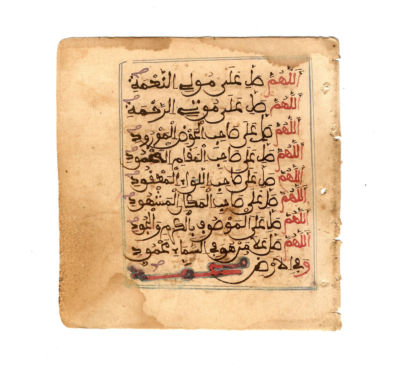 اللهم صل على مولي النعمة
اللهم صل على موتي الرحمة
اللهم صل على صاحب الحوض المورود
اللهم صل على صاحب المقام المحمود
اللهم صل على صاحب اللواء المعقود
اللهم صل على صاحب المكان المشهود
اللهم صل على الموصوف بالكرم والجود
اللهم صل على من هو في السماء محمود
وفي الارض